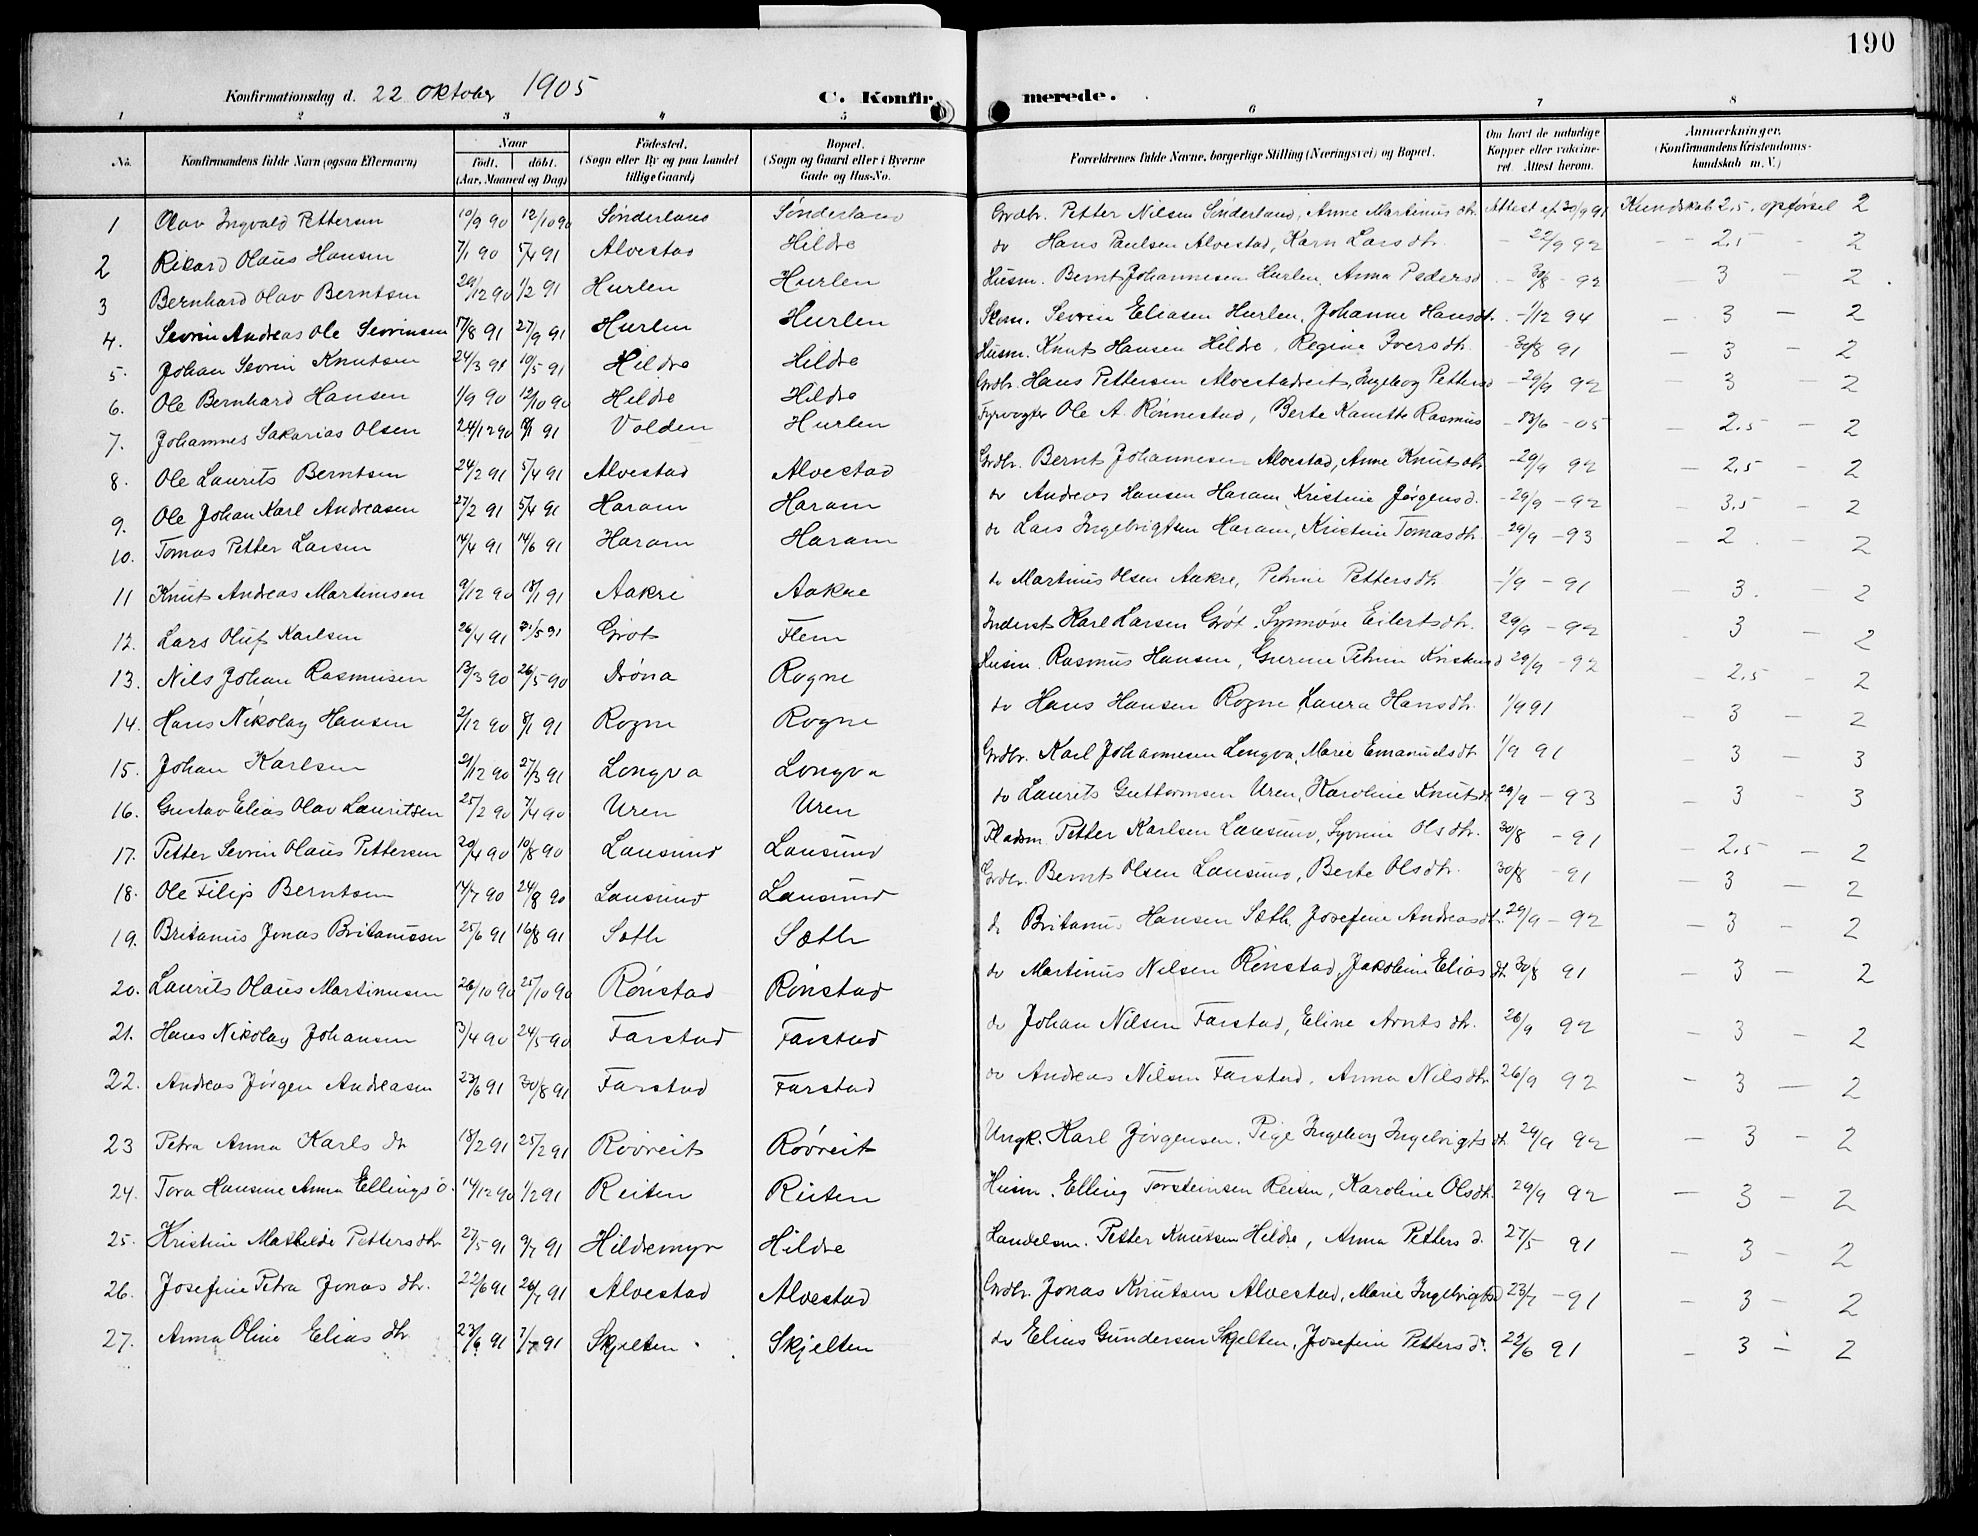 190
Konfirmationsdag d. 22 Oktober 1905 C. Konfirmerede.
1 2 3 4 5 6 7 8
No. Konfirmandens fulde Navn (ogsaa Efternavn) Naar født, døbt. (Aar, Maaned og Dag) Fødested. (Sogn eller By og paa Landet tillige Gaard) Bopæl. (Sogn og Gaard eller i Byerne Gade og Hus-No. Forældrenes fulde Navne, borgerlige Stilling (Næringsvei) og Bopæl. Om havt de naturlige Kopper eller vaccineret. Attest herom. Anmærkninger. (Konfirmandens Kristendomskundskab m. V.)
1 Olav Ingvald Pettersen 10/9 90 12/10 90 Sønderland Sønderland Grdbr. Petter Nilsen Sønderland, Anne Martinus dtr. Attest af 30/9 91 Kundskab 2,5, opførsel 2
2 Rikard Olaus Hansen 7/1 90 5/4 91 Alvestad Hildre do Hans Paulsen Alvestad, Karn Lars dtr. - 22/9 92 - - 2,5 - 2
3 Bernhard Olav Berntsen 29/12 90 1/2 91 Hurlen Hurlen Husm. Bernt Johannesen Hurlen, Anna Pedersd - 30/8 - 92 - 3 - 2
4. Sevrin Andreas Ole Sevrinsen 17/8 91 27/9 91 Hurlen Hurlen Skom. Sevrin Eliasen Hurlen, Johanne Hansdt. - 1/12 94 - 3 - 2
5. Johan Sevrin Knutsen 24/3 91 10/5 91 Hildre Hildre Husm. Knut Hansen Hildre, Regine Ivers dtr. - 30/8 91 - 3 - 2
6. Ole Bernhard Hansen 1/9 90 12/10 90 Hildre Hildre Grdbr. Hans Pettersen Alvestadreit, Ingeborg Petters d - 29/9 92 - 3 - 2
7. Johannes Sakarias Olsen 24/12 90 8/1 91 Volden Hurlen Fyrvogter Ole A. Rønnestad, Berte Kanutte Rasmus - 13/6 - 05 - 2,5 - 2
8. Ole Laurits Berntsen 24/2 91 5/4 91 Alvestad Alvestad Grdbr. Bernt Johannesen Alvestad, Anne Knuts dtr - 29/9 92 - 2,5 - 2
9. Ole Johan Karl Andreasen 27/2 91 5/4 91 Haram Haram do Andreas Hansen Haram, Kristine Jørgens d. - 29/9 - 92 - 3,5 - 2
10. Tomas Petter Larsen 14/4 91 14/6 91 Haram Haram do Lars Ingebrigtsen Haram, Kristine Tomas dtr. - 29/9 - 93 - 2 - 2
11 Knut Andreas Martinusen 9/12 90 18/1 91 Aakre Aakre do Martinus Olsen Aakre, Petrine Petters dtr. - 1/9 - 91 - 3. - 2
12. Lars Oluf Karlsen 26/4 91 31/5 91 Grøt Flem Inderst Karl Larsen Grøt, Synnøve Eilerts dtr. 29/9 - 92 - 3 - 2
13. Nils Johan Rasmusen 13/3 90 26/5 90 Drøna Rogne Husm. Rasmus Hansen, Petrine 29/9 - 92 - 2,5 - 2
14. Hans Nikolay Hansen 2/12 90 8/1 91 Rogne Rogne do Hans Hansen Rogne Laura Hans dtr. 1/9 91 - 3 - 2
15. Johan Karlsen 21/12 90 27/3 91 Longva Longva Grdbr. Karl Johannesen Longva, Marie Emanuels dtr 1/9 91 - 3 - 3
16. Gustav Elias Olav Lauritsen 25/2 90 7/4 90 Uren Uren do Laurits Guttormsen Uren, Karoline Knuts dt 29/9 - 93 - 3 - 3
17. Petter Sevrin Olaus Pettersen 20/4 90 10/8 90 Lausund Lausund Pladsm. Petter Karlsen Lausund, Olsdtr. 30/8 - 91 - 2,5 - 2
18. Ole Filip Berntsen 14/7 90 24/8 90 Lausund Lausund Grdbr. Bernt Olsen Lausund, Berte Ols dtr. 30/8 - 91 - 3 - 2
19. Britanus Jonas Britanusen 25/6 91 16/8 91 Sæth Sæth do Britanus Hansen Sæth, Josefine Andreas dt. 29/9 - 92 - 3 - 2
20. Laurits Olaus Martinusen 26/10 90 25/10 90 Rønstad Rønstad do Martinus Nilsen Rønstad, Jakobine Elias dt. 30/8 91 - 3 - 2
21. Hans Nikolay Johansen 3/4 90 24/5 90 Farstad Farstad do Johan Nilsen Farstad, Eline Arnts dtr. 26/9 92 - 3 - 2
22. Andreas Jørgen Andreasen 23/6 91 30/8 91 Farstad Farstad do Andreas Nilsen Farstad, Anna Nils dtr 26/9 92 - 3 - 2
23 Petra Anna Karls dtr 18/2 91 25/2 91 Røvreit Røvreit Ungk. Karl Jørgensen, Pige Ingeborg Ingebrigts dt. 29/9 92 - 3 - 2
24. Tora Hansine Anna Ellings d. 14/12 90 1/2 91 Reiten Reiten Husm. Elling Torsteinsen Reiten, Karoline Ols dtr. 29/9 92 - 3 - 2
25. Kristine Mathilde Petters dtr 27/5 91 9/7 91 Hildremyr Hildre Landelsm. Petter Knutsen Hildre, Anna Petters d. 27/5 91 - 3 - 2
26. Josefine Petra Jonas dtr. 22/6 91 26/7 91 Alvestad Alvestad Grdbr. Jonas Knutsen Alvestad, Marie Ingebrigtsd 23/7 - 91 - 3 - 2
27. Anna Oline Elias dtr 23/6 91 7/7 91 Skjelten Skjelten do Elias Gundersen Skjelten, Josefine Petters d. 22/6 91 - 3 - 2